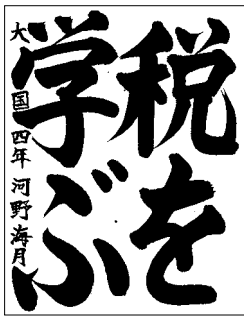 税を
学ぶ
大国 四年 河野海月